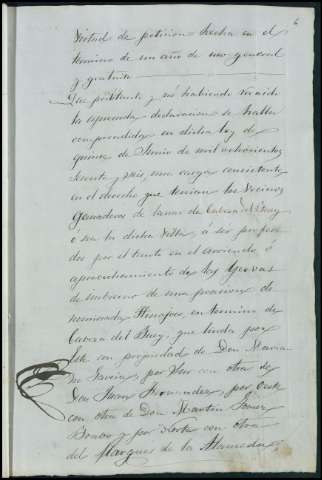 6
virtud de peticion hecha en el
termino de un año de uso general
y gratuito
Que no habiendo
la espresada declaracion se halla
comprendida en dicha ley de
quince de Junio de mil ochocientos
sesenta y seis, una carga consistente
en el derecho que tenian los vecinos
ganaderos de lanar de Cabeza del Buey
ó sea la dicha villa, á ser preferi
dos por el tanto en el arriendo ó
aprovechamiento de las Yervas
de imbierno de una posesion de
nominada Hinojosa, en termino de
Cabeza del Buey, que linda por
Este con propiedad de Don Maria
no por Sur con otra de
Don Juan Fernandez, por Oeste
con otra de Don Martin Gomez
Bravo y por Norte con otra
del Marques de la Alameda